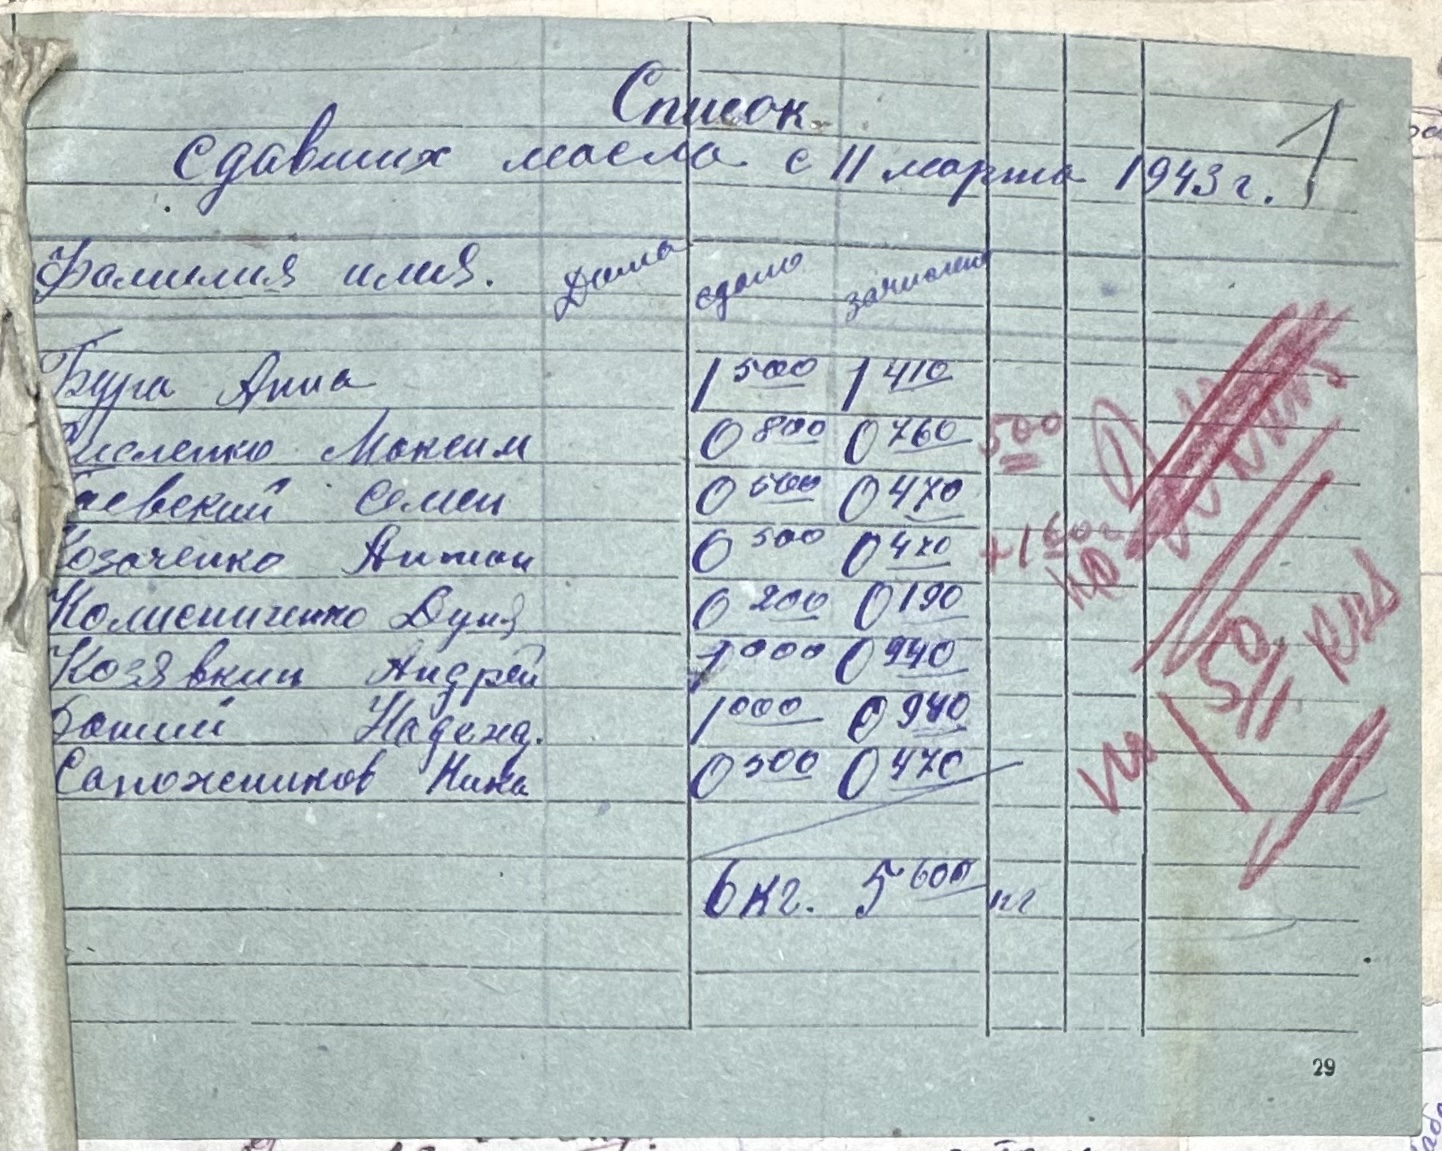 1
Список
сдавших масла с 11 марта 1943 г.
Фамилия имя. Дата сдано зачислено
Буга Анна 1 500 1 410
Максим 0 800 0 760 500
Семен 0 500 0 470
Козаченко Антон 0 500 0 470 +1 600
Колисниченко Дуня 0 200 0 190
Козявкин Андрей 1 000 0 940
Надежд. 1 000 0 940
Сапожников Нина 0 500 0 470
6 кг. 5 600 кг
29